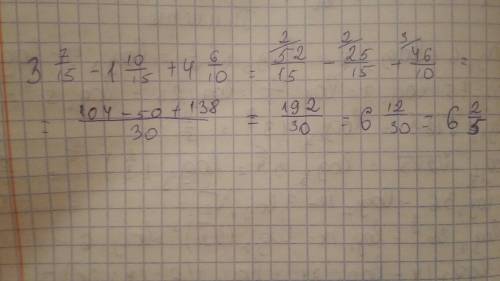 3 7/15 - 1 10/15 + 4 6/10 = 2/ 52/15 - 2/ 25/15 + 3/ 46/10 =
= (104 - 50 + 138)/30 = 192/30 = 6 12/30 = 6 2/5